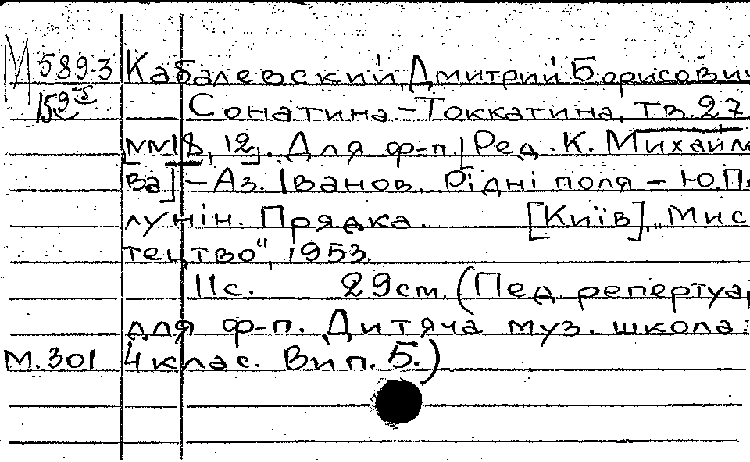 М 589-3 Кабалевский, Дмитрий Борисович
159 Сонатина.-Токкатина, тв. 27
[№№18, 12]. Для ф-п. [Ред. К. Михайло
ва] - Аз. Іванов. Рідні поля - Ю.П
лунін. Прядка. [Київ], "Мис
тецтво", 1953
11с. 29см. (Пед. репертуар
для ф-п. Дитяча муз. школа:
М.301 4 клас. Вип. 5.)